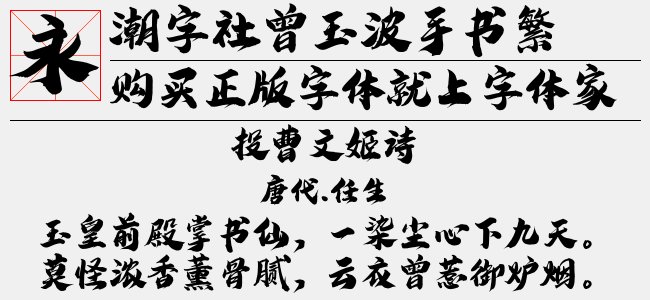 永
潮字社曾玉波手书繁
购买正版字体就上字体家
投曹文姬诗
唐代.任生
玉皇前殿掌书仙，一染尘心下九天。
莫怪浓香薰骨腻，云衣曾惹御炉烟。